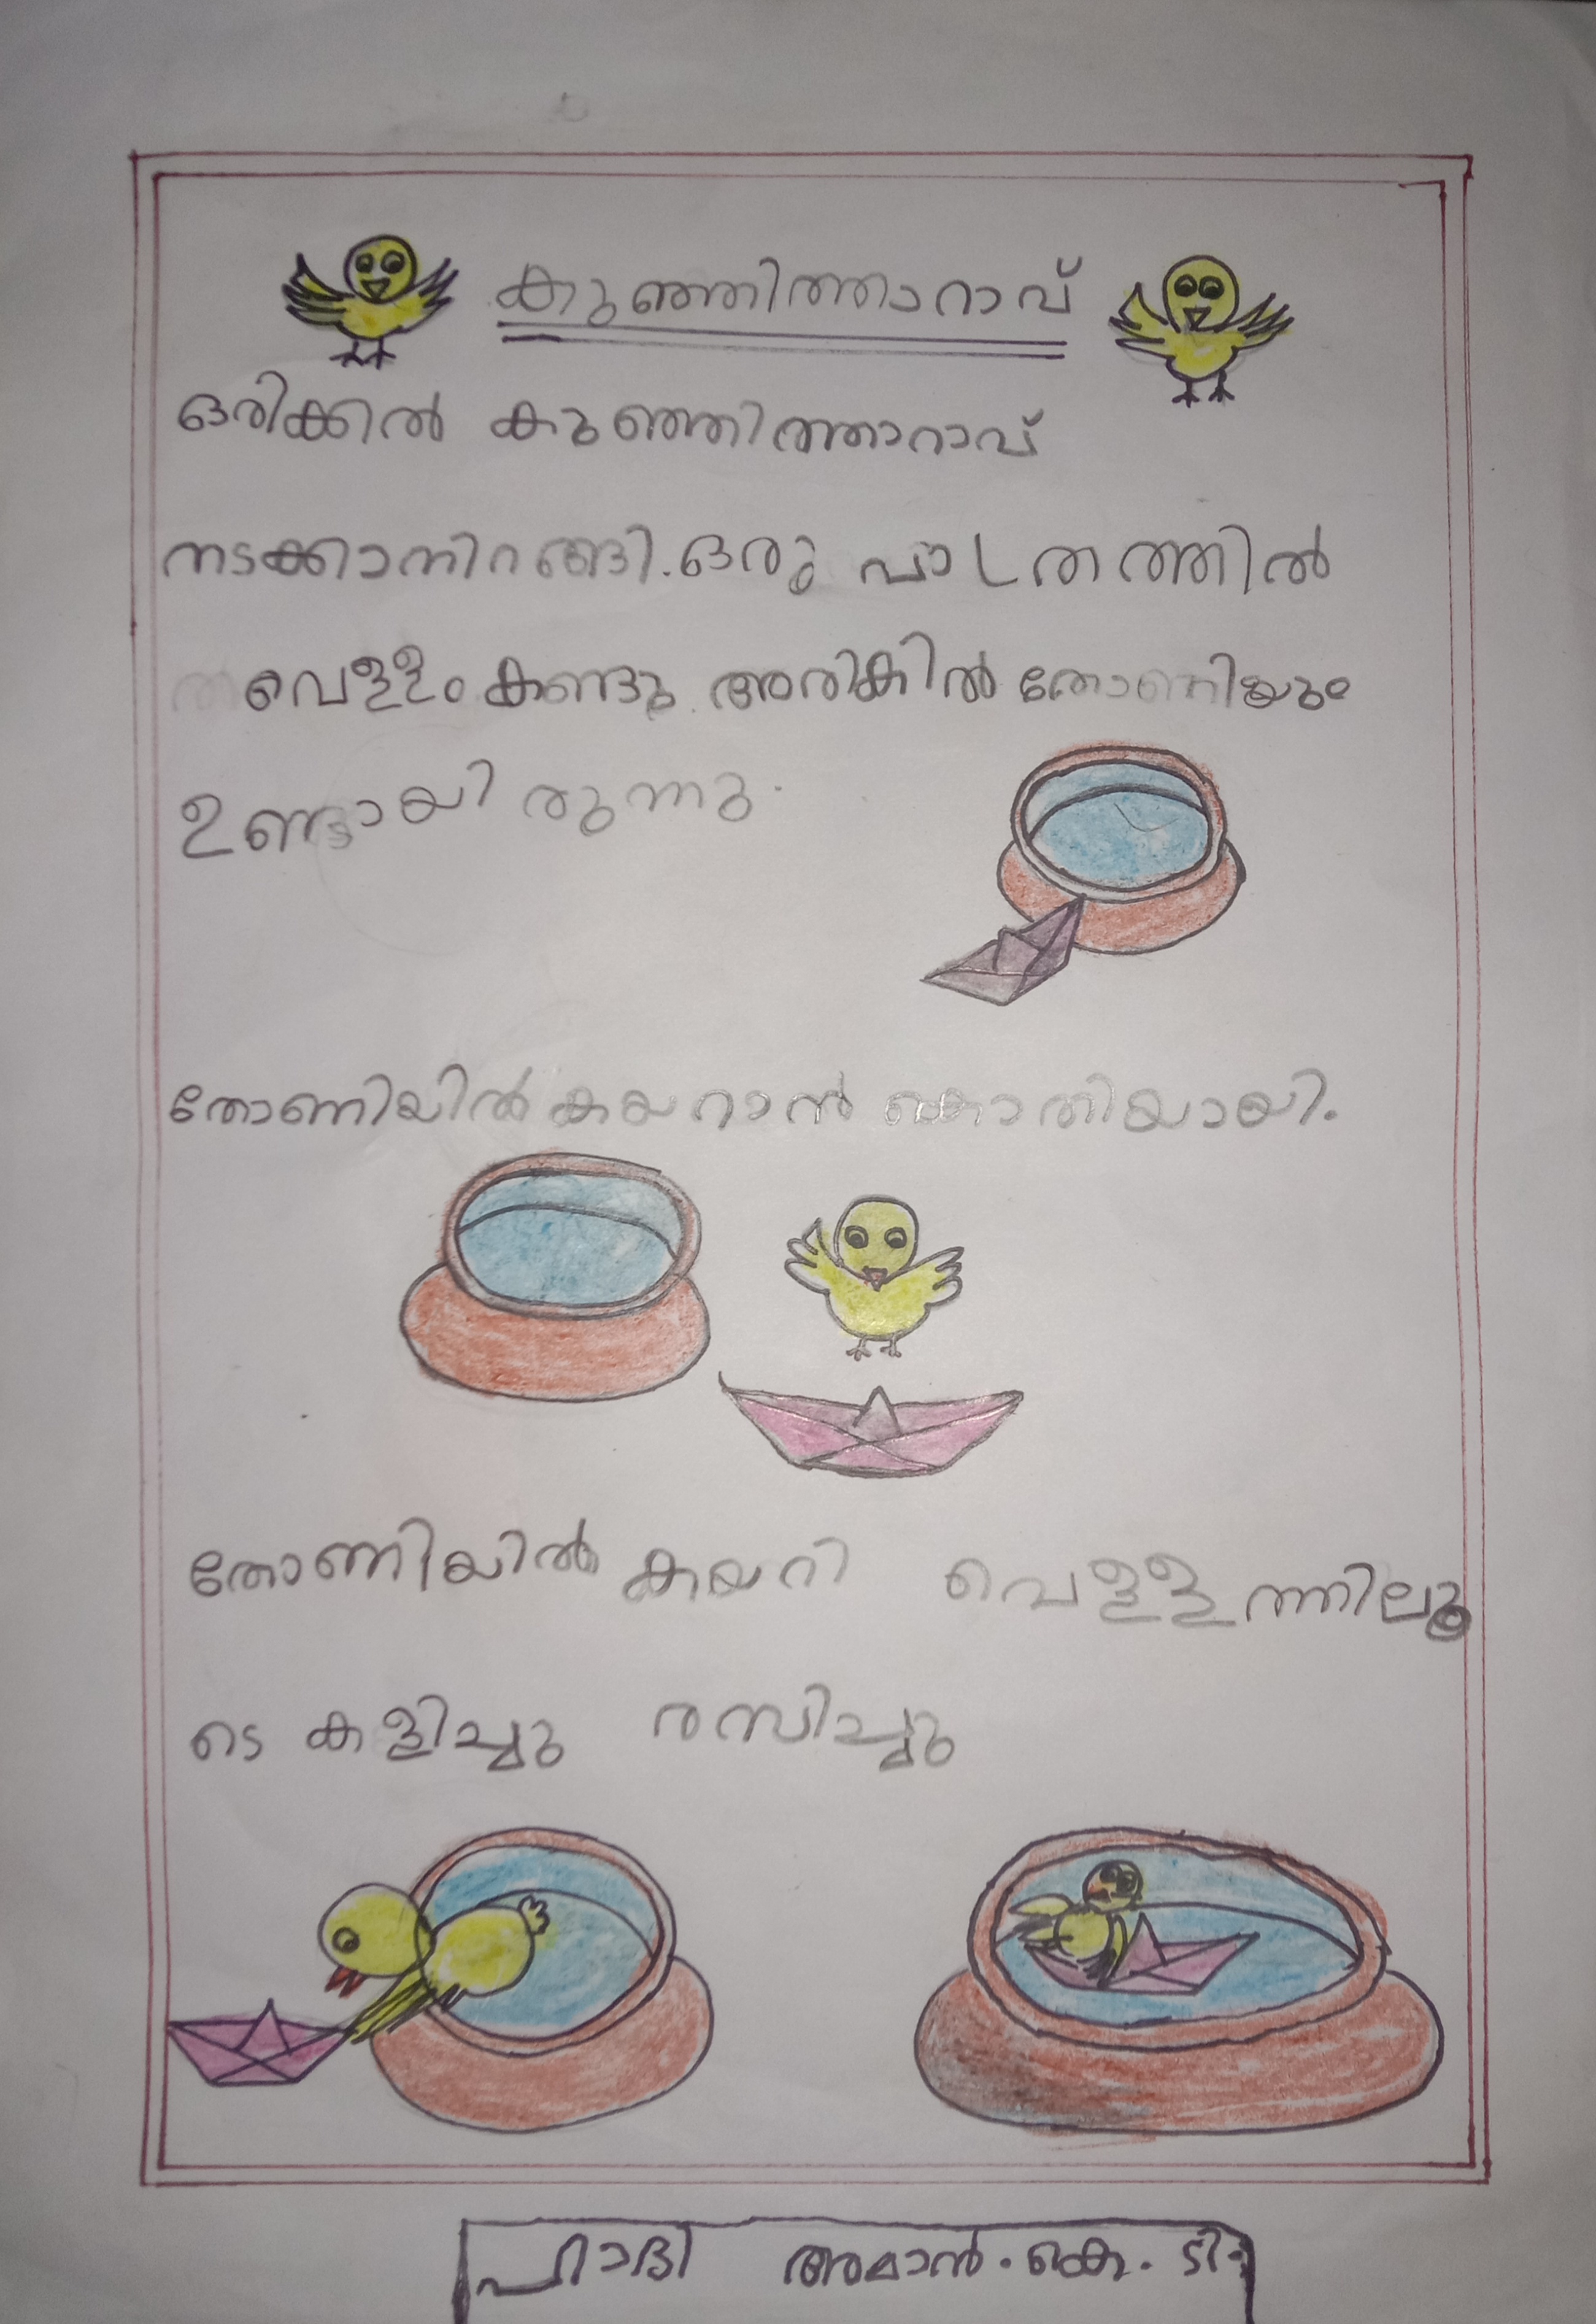 കുഞ്ഞിത്താറാവ്
ഒരിക്കൽ കുഞ്ഞിത്താറാവ്
നടക്കാനിറങ്ങി. ഒരു പാത്രത്തിൽ
വെള്ളം കണ്ടു. അരികിൽ തോണിയും
ഉണ്ടായിരുന്നു.
തോണിയിൽ കയറാൻ കൊതിയായി.
തോണിയിൽ കയറി വെള്ളത്തിലൂ
ടെ കളിച്ചു രസിച്ചു
ഹാദി അമാൻ. കെ. ടി.